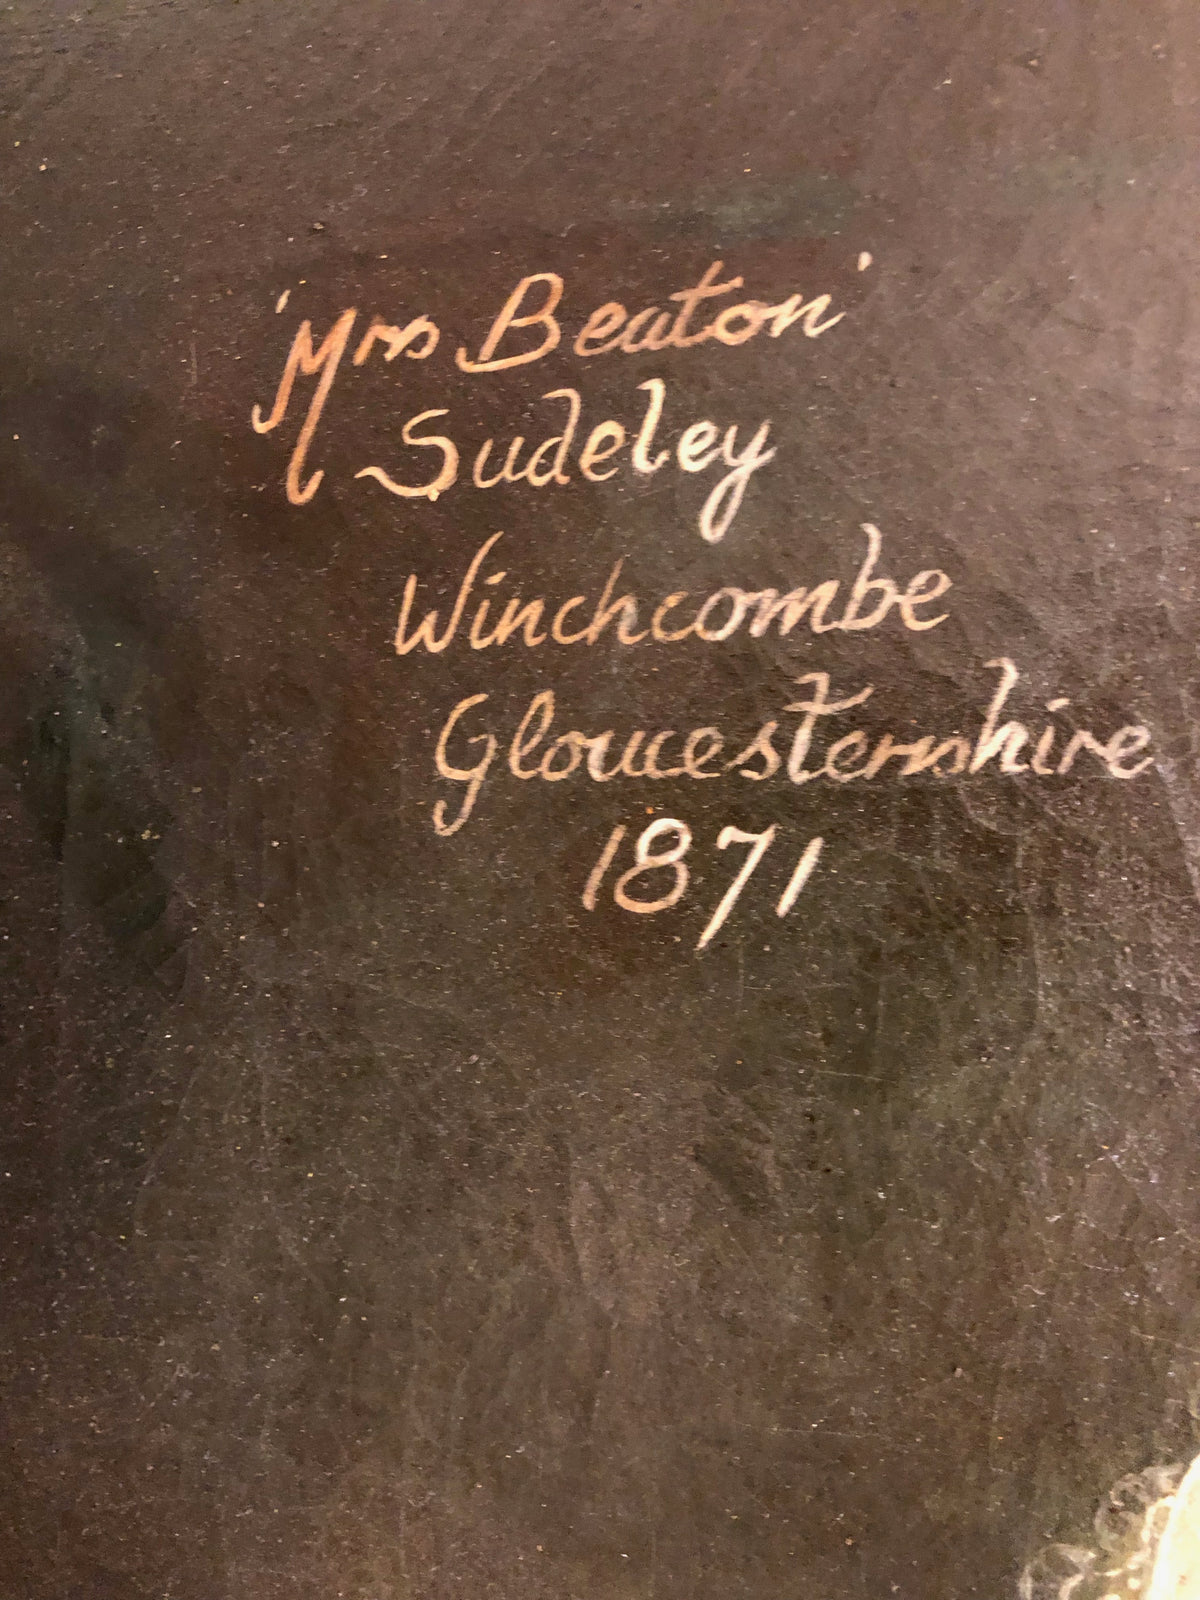 'Mrs Beaton'
Sudeley
Winchcombe
Gloucestershire
1871